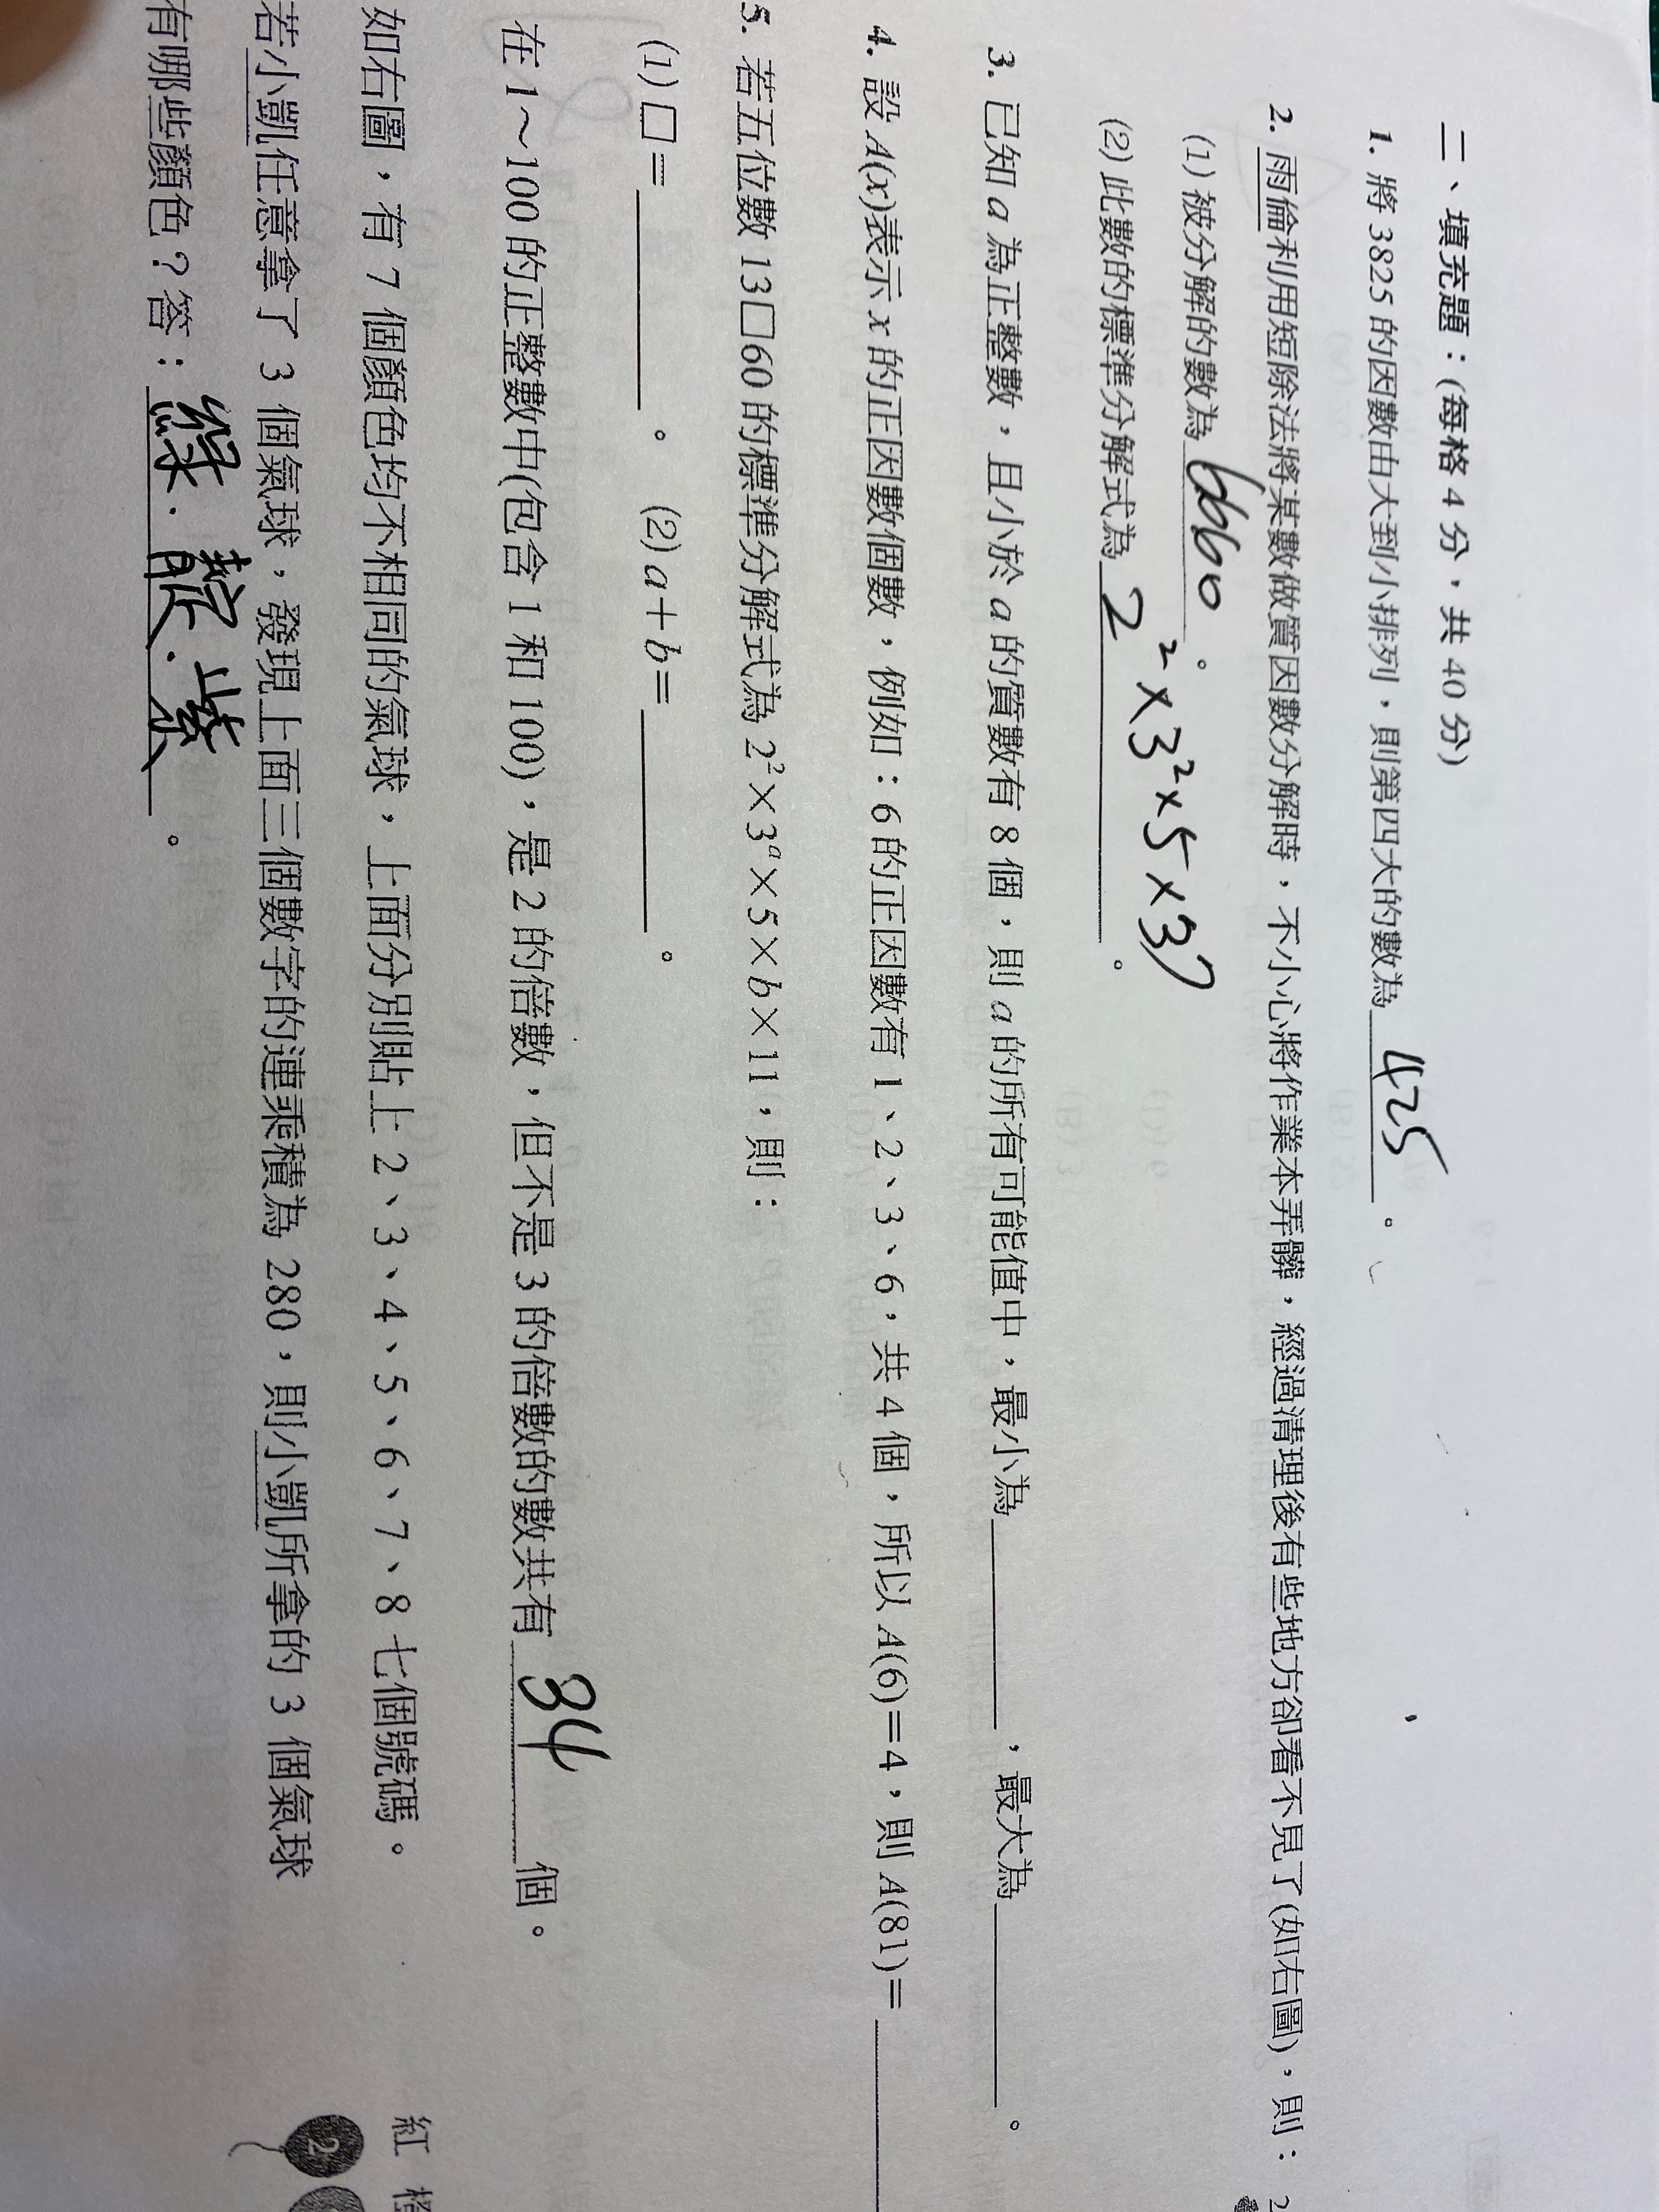 二、填充題：(每格 4 分，共 40 分)
1. 將 3825 的因數由大到小排列，則第四大的數為 425 。
2. 雨倫利用短除法將某數做質因數分解時，不小心將作業本弄髒，經過清理後有些地方卻看不見了(如右圖)，則： 2
(1) 被分解的數為 6660 。
(2) 此數的標準分解式為 2²×3²×5×37 。
3. 已知 a 為正整數，且小於 a 的質數有 8 個，則 a 的所有可能值中，最小為 ，最大為 。
4. 設 A(x)表示 x 的正因數個數，例如：6 的正因數有 1、2、3、6，共 4 個，所以 A(6)＝4，則 A(81)＝
5. 若五位數 13□60 的標準分解式為 2³×3ᵃ×5×b×11，則：
(1) □＝ 。 (2) a＋b＝ 。
在 1～100 的正整數中(包含 1 和 100)，是 2 的倍數，但不是 3 的倍數的數共有 34 個。
如右圖，有 7 個顏色均不相同的氣球，上面分別貼上 2、3、4、5、6、7、8 七個號碼。
若小凱任意拿了 3 個氣球，發現上面三個數字的連乘積為 280，則小凱所拿的 3 個氣球
有哪些顏色？答：綠、靛、紫 。
紅 橙
2